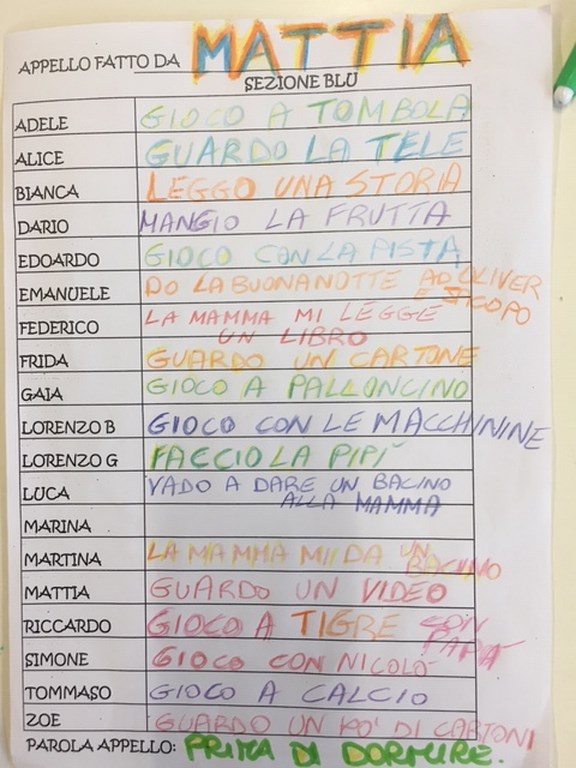 APPELLO FATTO DA MATTIA
SEZIONE BLU
ADELE GIOCO A TOMBOLA
ALICE GUARDO LA TELE
BIANCA LEGGO UNA STORIA
DARIO MANGIO LA FRUTTA
EDOARDO GIOCO CON LA PISTA
EMANUELE DO LA BUONANOTTE AD OLIVER
E JACOPO
FEDERICO LA MAMMA MI LEGGE
UN LIBRO
FRIDA GUARDO UN CARTONE
GAIA GIOCO A PALLONCINO
LORENZO B GIOCO CON LE MACCHININE
LORENZO G FACCIO LA PIPÍ
LUCA VADO A DARE UN BACINO
ALLA MAMMA
MARINA
MARTINA LA MAMMA MI DA UN
BACINO
MATTIA GUARDO UN VIDEO
RICCARDO GIOCO A TIGRE CON
PAPÀ
SIMONE GIOCO CON NICOLÒ
TOMMASO GIOCO A CALCIO
ZOE GUARDO UN KO' DI CARTONI
PAROLA APPELLO: PRIMA DI DORMIRE.